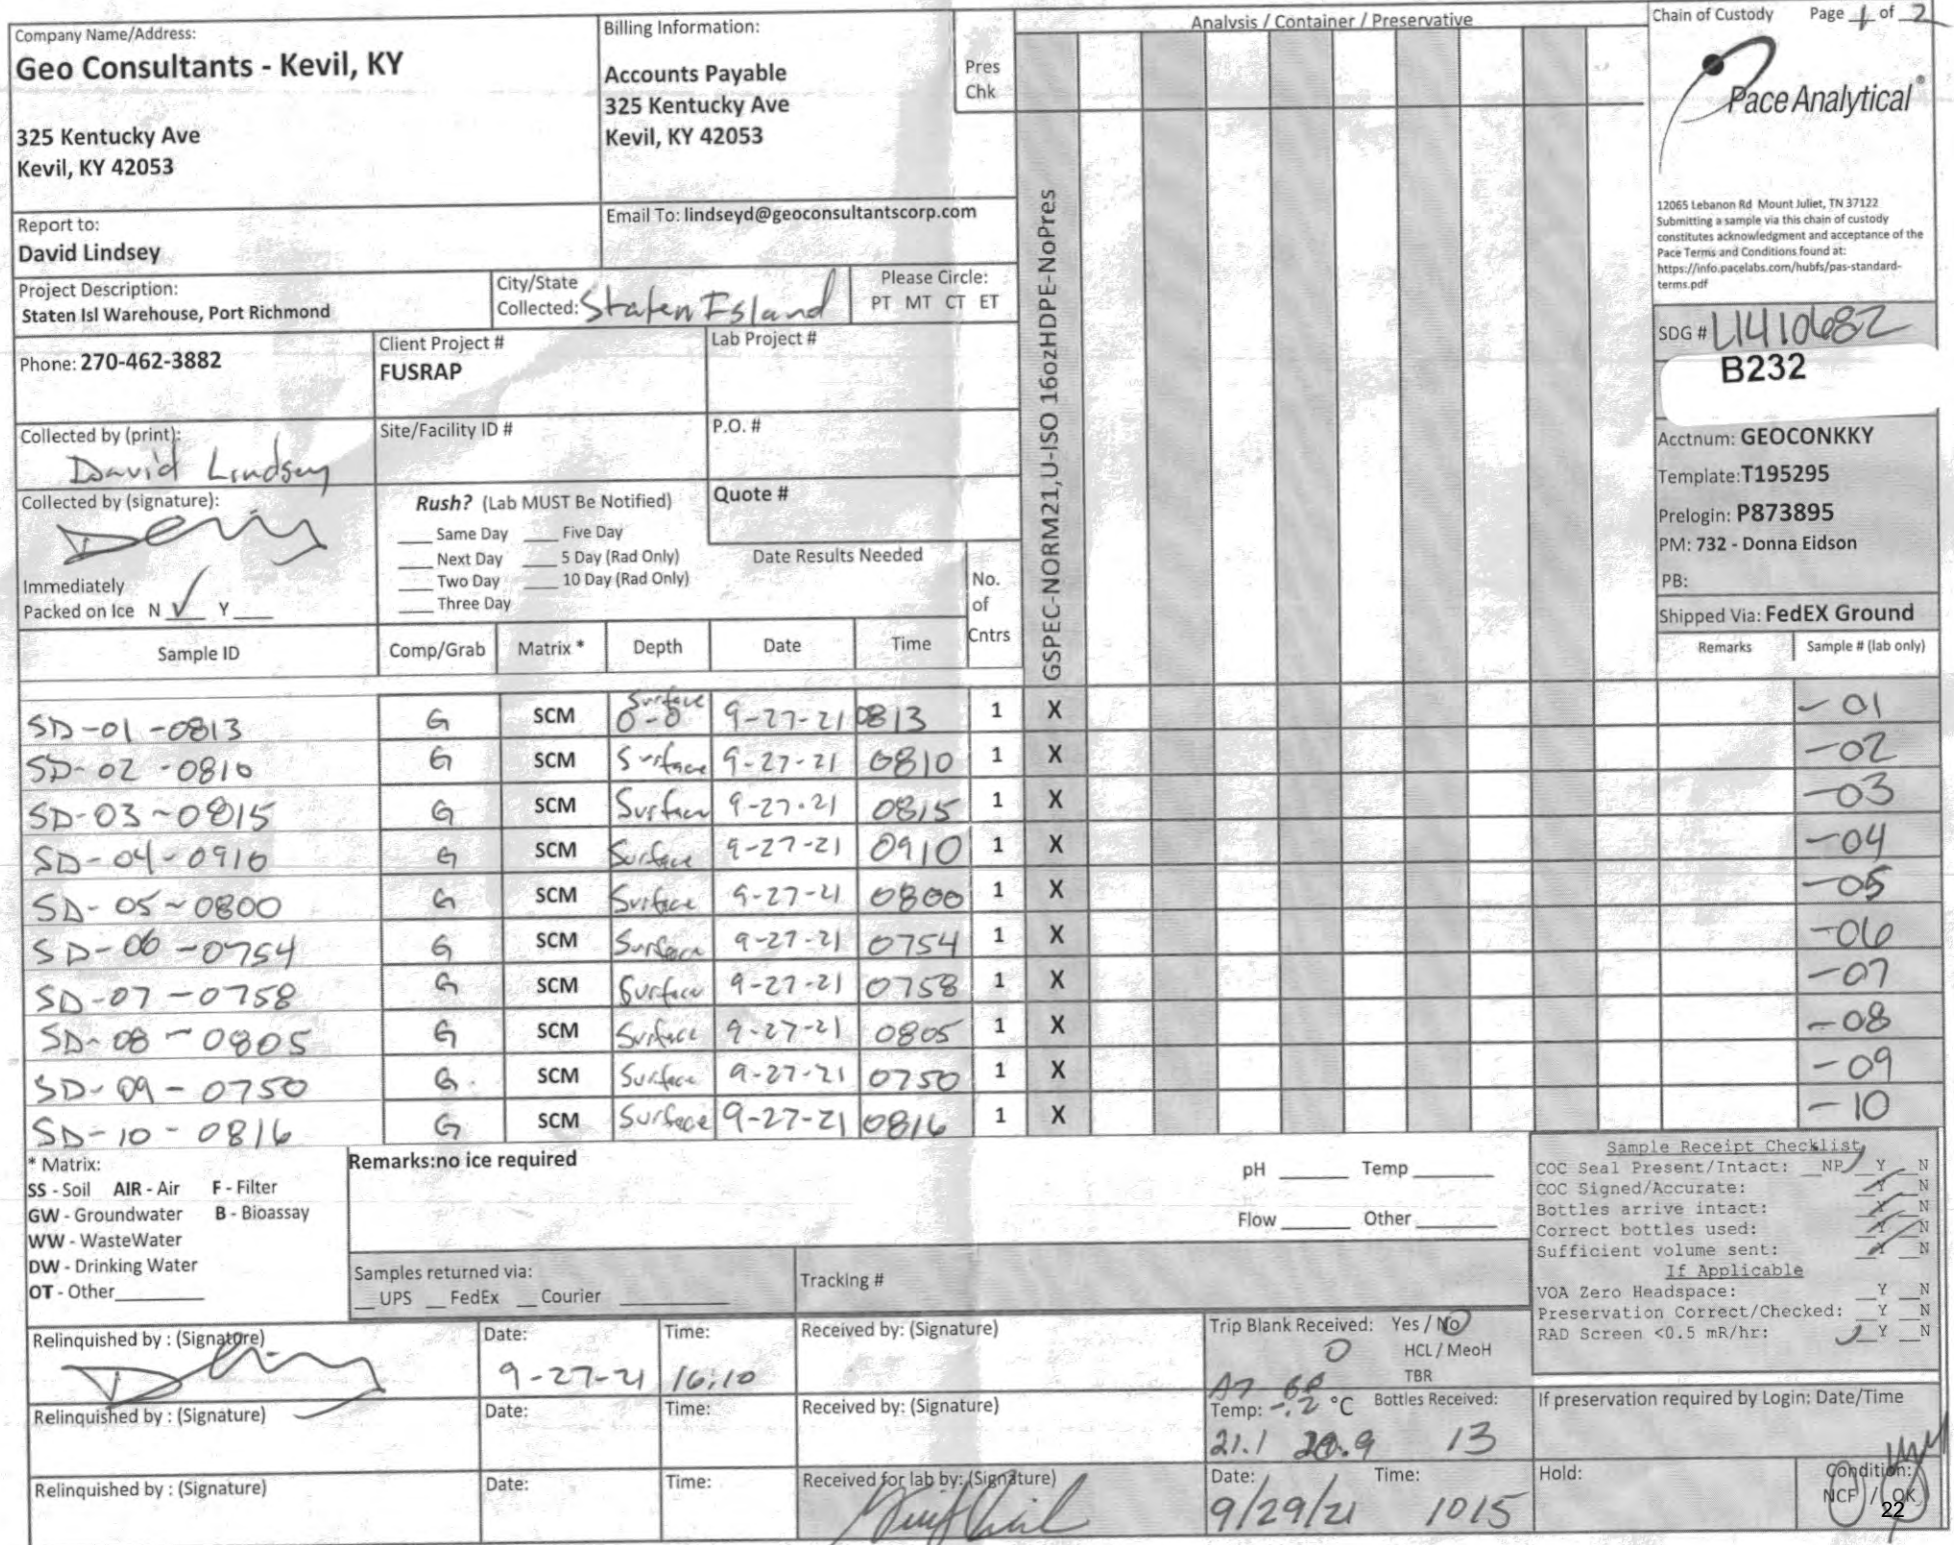 Company Name/Address:
Geo Consultants - Kevil, KY
325 Kentucky Ave
Kevil, KY 42053
Billing Information:
Accounts Payable
325 Kentucky Ave
Kevil, KY 42053
Pres
Chk
Analysis / Container / Preservative
Chain of Custody Page 1 of 2
Pace Analytical®
12065 Lebanon Rd Mount Juliet, TN 37122
Submitting a sample via this chain of custody
constitutes acknowledgment and acceptance of the
Pace Terms and Conditions found at:
https://info.pacelabs.com/hubfs/pas-standard-
terms.pdf
Report to:
David Lindsey
Email To: lindseyd@geoconsultantscorp.com
Project Description:
Staten Isl Warehouse, Port Richmond
City/State
Collected: Staten Island
Please Circle:
PT MT CT ET
Phone: 270-462-3882
Client Project #
FUSRAP
Lab Project #
SDG # L1410682
B232
Collected by (print):
David Lindsey
Site/Facility ID #
P.O. #
Acctnum: GEOCONKKY
Template: T195295
Prelogin: P873895
PM: 732 - Donna Eidson
PB:
Shipped Via: FedEX Ground
Collected by (signature):
Rush? (Lab MUST Be Notified)
Same Day Five Day
Next Day 5 Day (Rad Only)
Two Day 10 Day (Rad Only)
Three Day
Quote #
Date Results Needed
Immediately
Packed on Ice N ✓ Y
No.
of
Cntrs
GSPEC-NORM21,U-ISO 16ozHDPE-NoPres
Sample ID Comp/Grab Matrix * Depth Date Time Remarks Sample # (lab only)
SD-01-0813 G SCM Surface 0-0 9-27-21 0813 1 X -01
SD-02-0810 G SCM Surface 9-27-21 0810 1 X -02
SD-03-0815 G SCM Surface 9-27-21 0815 1 X -03
SD-04-0910 G SCM Surface 9-27-21 0910 1 X -04
SD-05-0800 G SCM Surface 9-27-21 0800 1 X -05
SD-06-0754 G SCM Surface 9-27-21 0754 1 X -06
SD-07-0758 G SCM Surface 9-27-21 0758 1 X -07
SD-08-0805 G SCM Surface 9-27-21 0805 1 X -08
SD-09-0750 G SCM Surface 9-27-21 0750 1 X -09
SD-10-0816 G SCM Surface 9-27-21 0816 1 X -10
* Matrix:
SS - Soil AIR - Air F - Filter
GW - Groundwater B - Bioassay
WW - WasteWater
DW - Drinking Water
OT - Other
Remarks:no ice required
pH Temp
Flow Other
Samples returned via:
UPS FedEx Courier
Tracking #
Sample Receipt Checklist
COC Seal Present/Intact: NP Y N
COC Signed/Accurate: Y N
Bottles arrive intact: Y N
Correct bottles used: Y N
Sufficient volume sent: Y N
If Applicable
VOA Zero Headspace: Y N
Preservation Correct/Checked: Y N
RAD Screen <0.5 mR/hr: Y N
Relinquished by : (Signature)
Date: 9-27-21
Time: 16:10
Received by: (Signature)
Trip Blank Received: Yes / No
0
HCL / MeoH
TBR
Relinquished by : (Signature)
Date:
Time:
Received by: (Signature)
Temp: -.2 °C Bottles Received:
21.1 20.9 13
If preservation required by Login: Date/Time
Relinquished by : (Signature)
Date:
Time:
Received for lab by: (Signature)
Date: 9/29/21
Time: 1015
Hold:
Condition:
NCF / OK
22